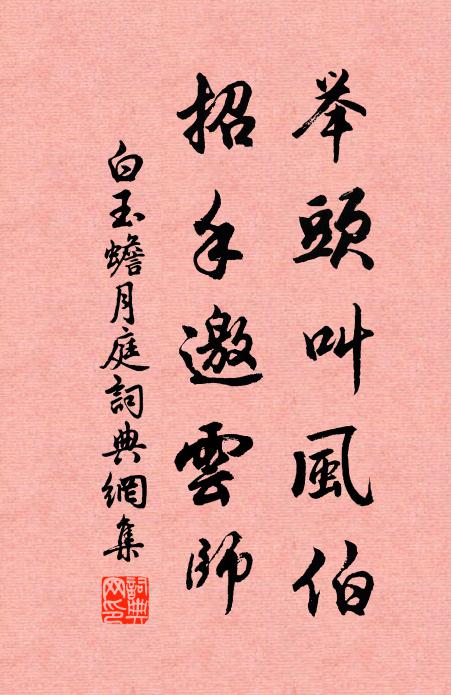 举頭叫風伯
招手邀雲師
白玉蟾月庭詞典網集
詞典网印